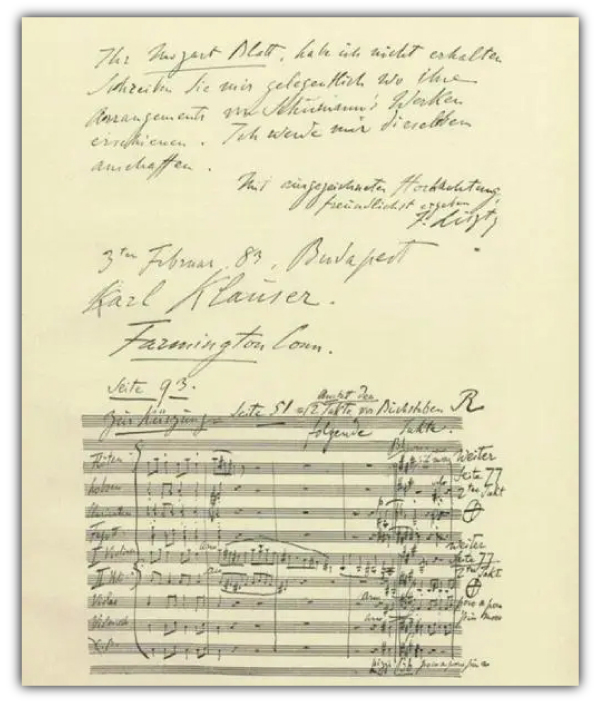 Ihr Mozart Blatt, hab ich nicht erhalten
Schreiben Sie mir gelegentlich wo ihre
Arrangements von Schumann's Werken
erschienen. Ich werde mir dieselben
anschaffen.
Mit ausgezeichneter Hochachtung,
freundlichst ergeben
F. Liszt
3ten Februar 83, Budapest
Karl Klauser.
Farmington Conn.
Seite 93.
Anstatt den
Zur Kürzung Seite 51 2 Takte vor Buchstaben R
folgende Takte.
weiter
Flöten
Seite 77
2ten Takt
Fagott
weiter
I Violine
Seite 77
2ten Takt
II
poco a poco
Violas
più
arco
pizz